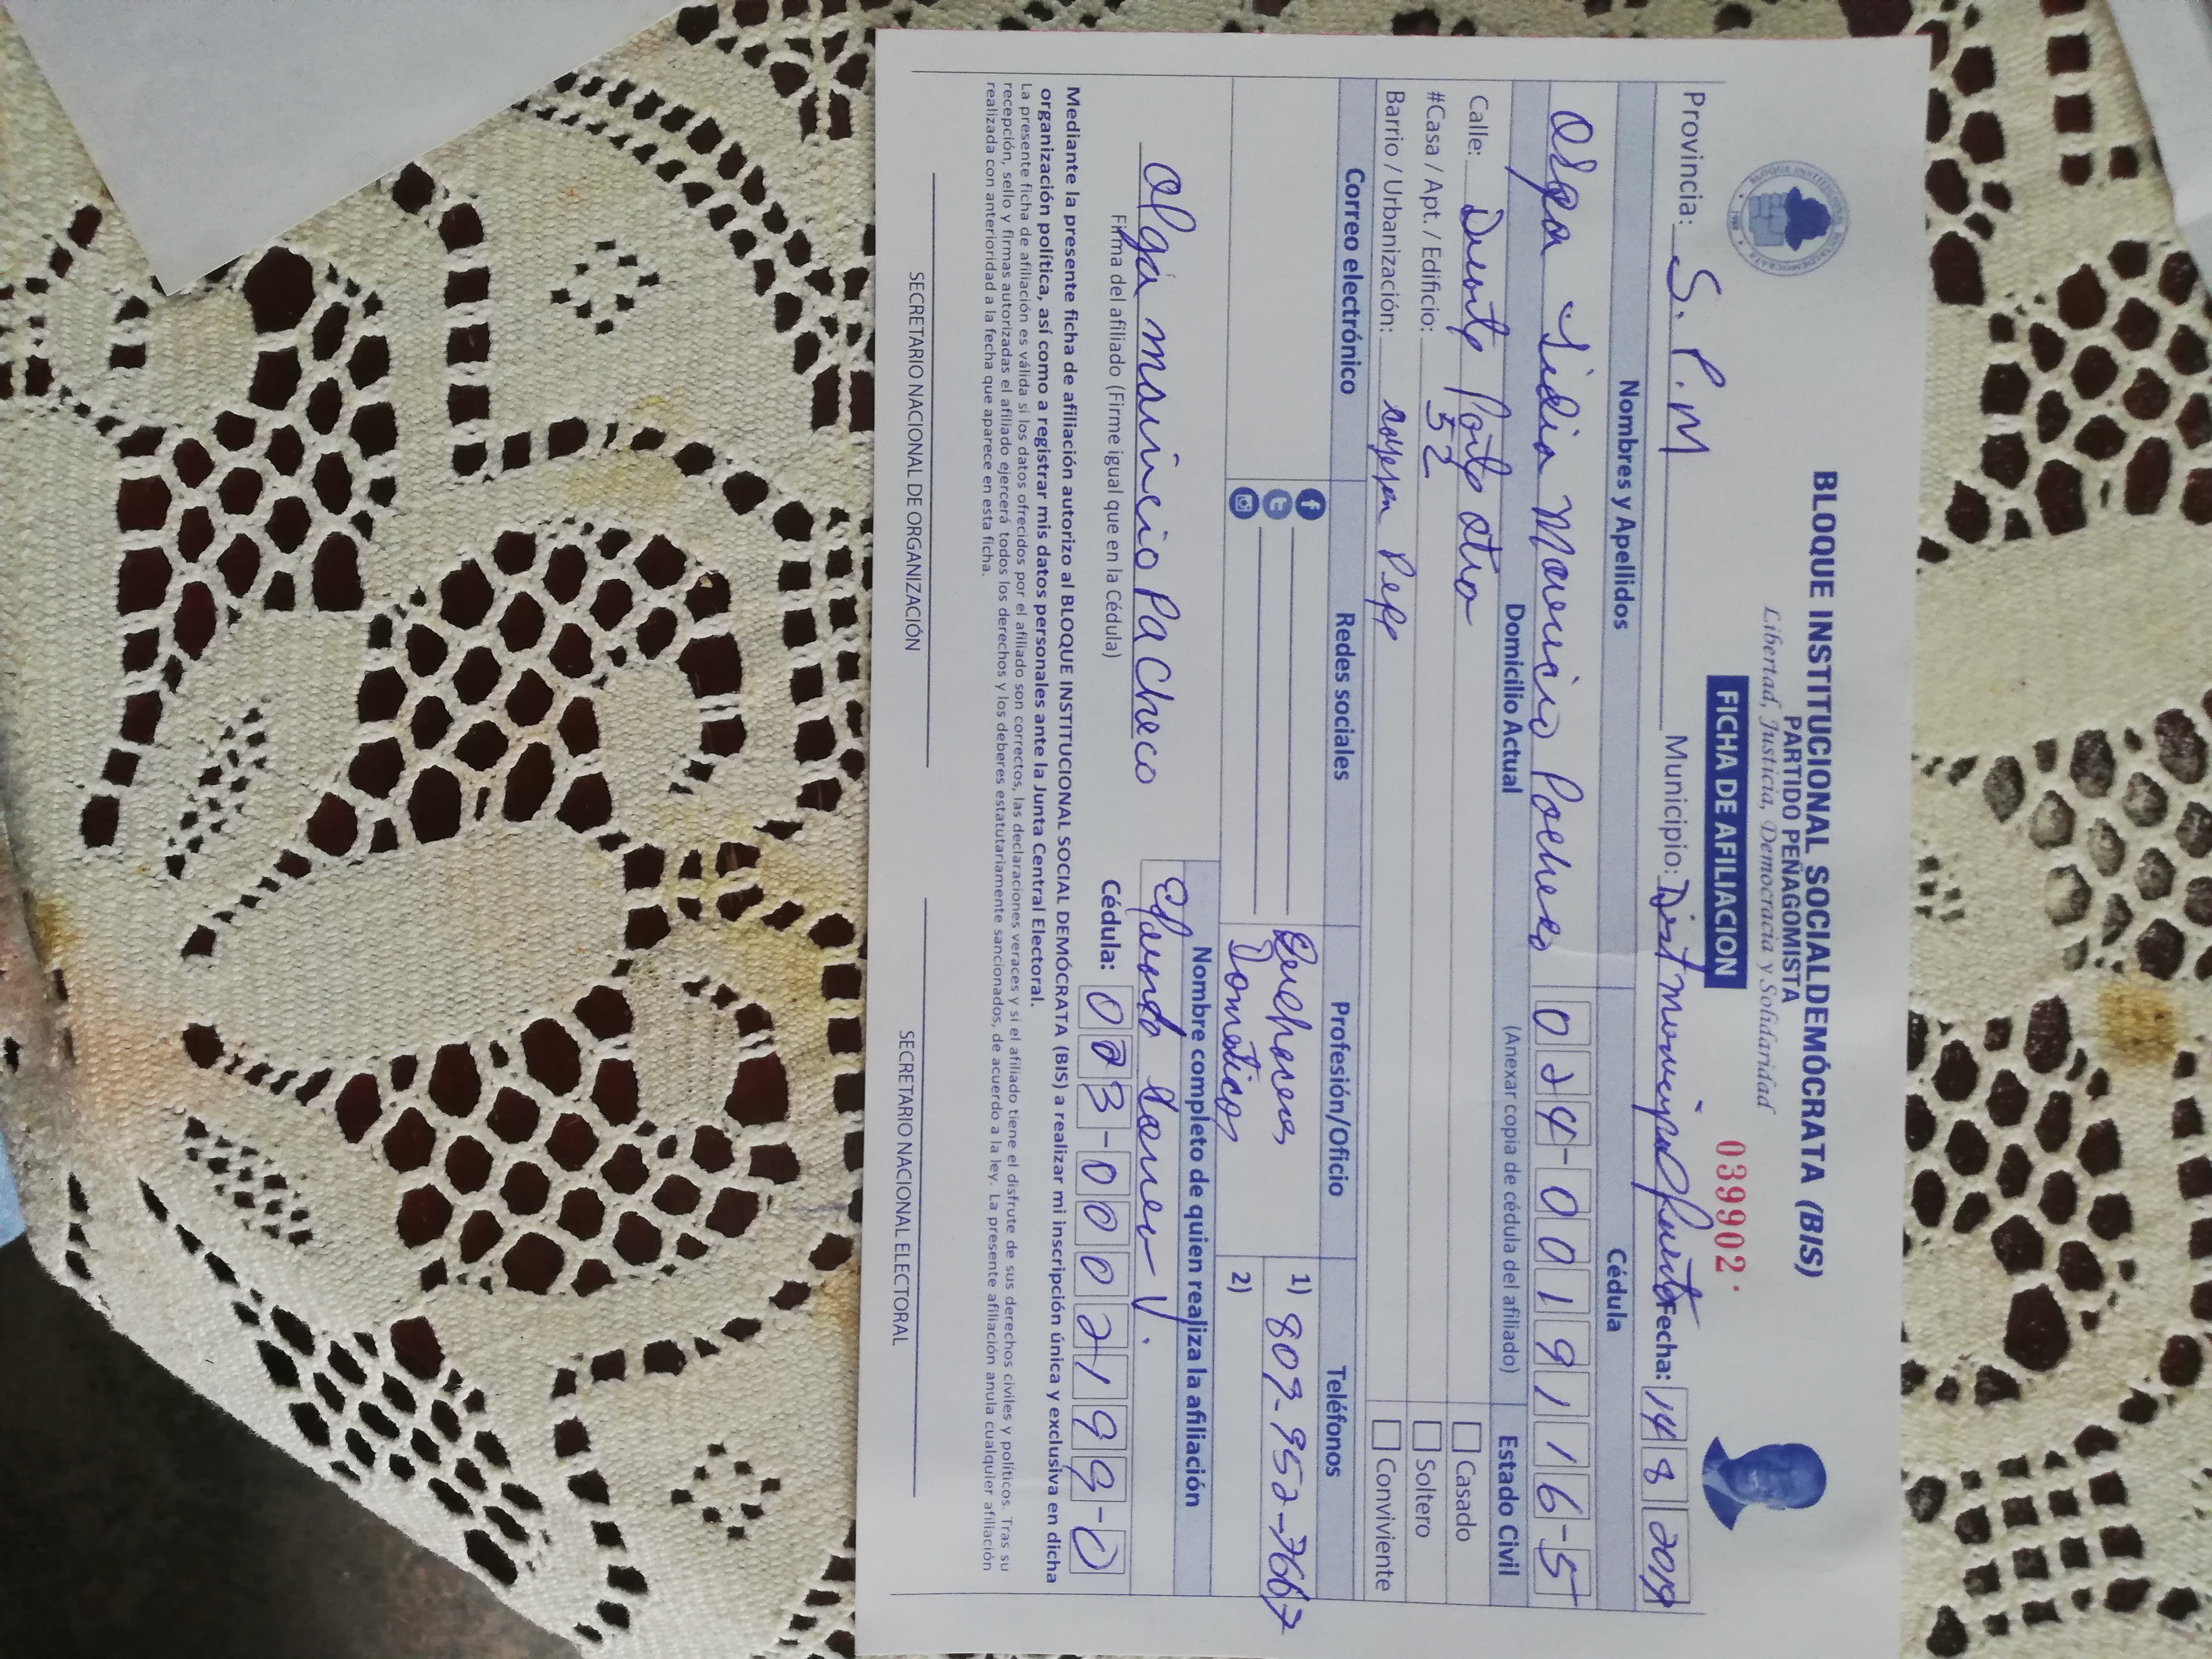 BLOQUE INSTITUCIONAL SOCIALDEMÓCRATA (BIS)
PARTIDO PEÑAGOMISTA
Libertad, Justicia, Democracia y Solidaridad
FICHA DE AFILIACION
039902
Provincia: S. P. M Municipio: Dist municipal Fecha: 14 8 2019
Nombres y Apellidos Cédula
Olga Lidia Mauricio Pacheco 024-0019116-5
Domicilio Actual (Anexar copia de cédula del afiliado) Estado Civil
Calle: Duarte Parte atra Casado
#Casa / Apt. / Edificio: 52 Soltero
Barrio / Urbanización: Conviviente
Correo electrónico Redes sociales Profesión/Oficio Teléfonos
Quehaceres 1) 809-952-7667
Domesticos 2)
Nombre completo de quien realiza la afiliación
Olga mauricio Pacheco
Firma del afiliado (Firme igual que en la Cédula) Cédula: 023-0002199-0
Mediante la presente ficha de afiliación autorizo al BLOQUE INSTITUCIONAL SOCIAL DEMÓCRATA (BIS) a realizar mi inscripción única y exclusiva en dicha
organización política, así como a registrar mis datos personales ante la Junta Central Electoral.
La presente ficha de afiliación es válida si los datos ofrecidos por el afiliado son correctos, las declaraciones veraces y si el afiliado tiene el disfrute de sus derechos civiles y políticos. Tras su
recepción, sello y firmas autorizadas el afiliado ejercerá todos los derechos y los deberes estatutariamente sancionados, de acuerdo a la ley. La presente afiliación anula cualquier afiliación
realizada con anterioridad a la fecha que aparece en esta ficha.
SECRETARIO NACIONAL DE ORGANIZACIÓN SECRETARIO NACIONAL ELECTORAL